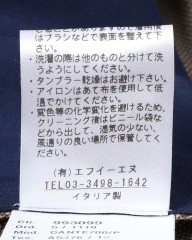 はブラシなどで表面を整えて下さい。
・洗濯の際は他のものと分けて洗
うようにしてください。
・タンブラー乾燥はお避け下さい。
・アイロンはあて布を使用して低
温でかけてください。
・変色等の化学変化を避けるため、
クリーニング後はビニール袋な
どから出して、湿気の少ない、
風通りの良い場所で保管してく
ださい。
(有)エフイーエヌ
TEL03-3498-1642
イタリア製